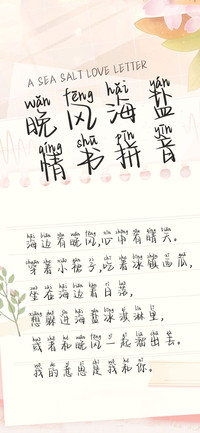 A SEA SALT LOVE LETTER
wǎn fēng hǎi yán
晚风海盐
qíng shū pīn yīn
情书拼音
海边有晚风,心中有晴天。
穿着小裙子,吃着冰镇西瓜,
坐在海边看日落,
想躲进海盐冰淇淋里,
或者和晚风一起溜出去。
我的意思是我和你。